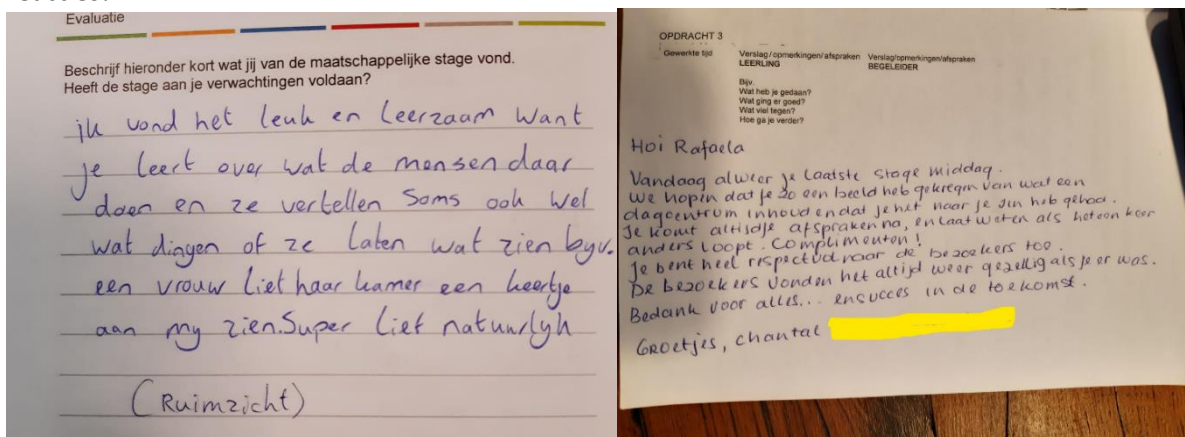 Evaluatie
Beschrijf hieronder kort wat jij van de maatschappelijke stage vond.
Heeft de stage aan je verwachtingen voldaan?
ik vond het leuk en leerzaam want
je leert over wat de mensen daar
doen en ze vertellen soms ook wel
wat dingen of ze laten wat zien bijv.
een vrouw liet haar kamer een keertje
aan mij zien. Super lief natuurlijk
(Ruimzicht)
OPDRACHT 3
Gewerkte tijd
Verslag/opmerkingen/afspraken
LEERLING
Verslag/opmerkingen/afspraken
BEGELEIDER
Bijv.
Wat heb je gedaan?
Wat ging er goed?
Wat viel tegen?
Hoe ga je verder?
Hoi Rafaela
Vandaag alweer je laatste stage middag.
We hopen dat je zo een beeld heb gekregen van wat een
dagcentrum inhoud en dat je het naar je zin heb gehad.
Je komt altijd je afspraken na, en laat weten als het een keer
anders loopt. Complimenten!
Je bent heel respectvol naar de bezoekers toe.
De bezoekers vonden het altijd weer gezellig als je er was.
Bedank voor alles... en succes in de toekomst.
Groetjes, chantal